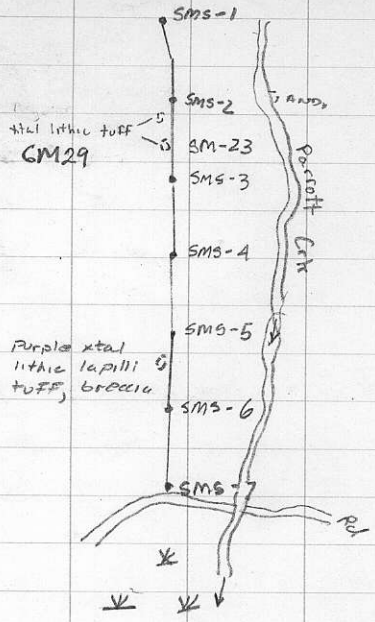 SMS-1
SMS-2
; AND,
xtal lithic tuff
GM29
SM-23
SMS-3
Parrott Crk
SMS-4
SMS-5
Purple xtal
lithic lapilli
tuff, breccia
SMS-6
SMS-7
Rd